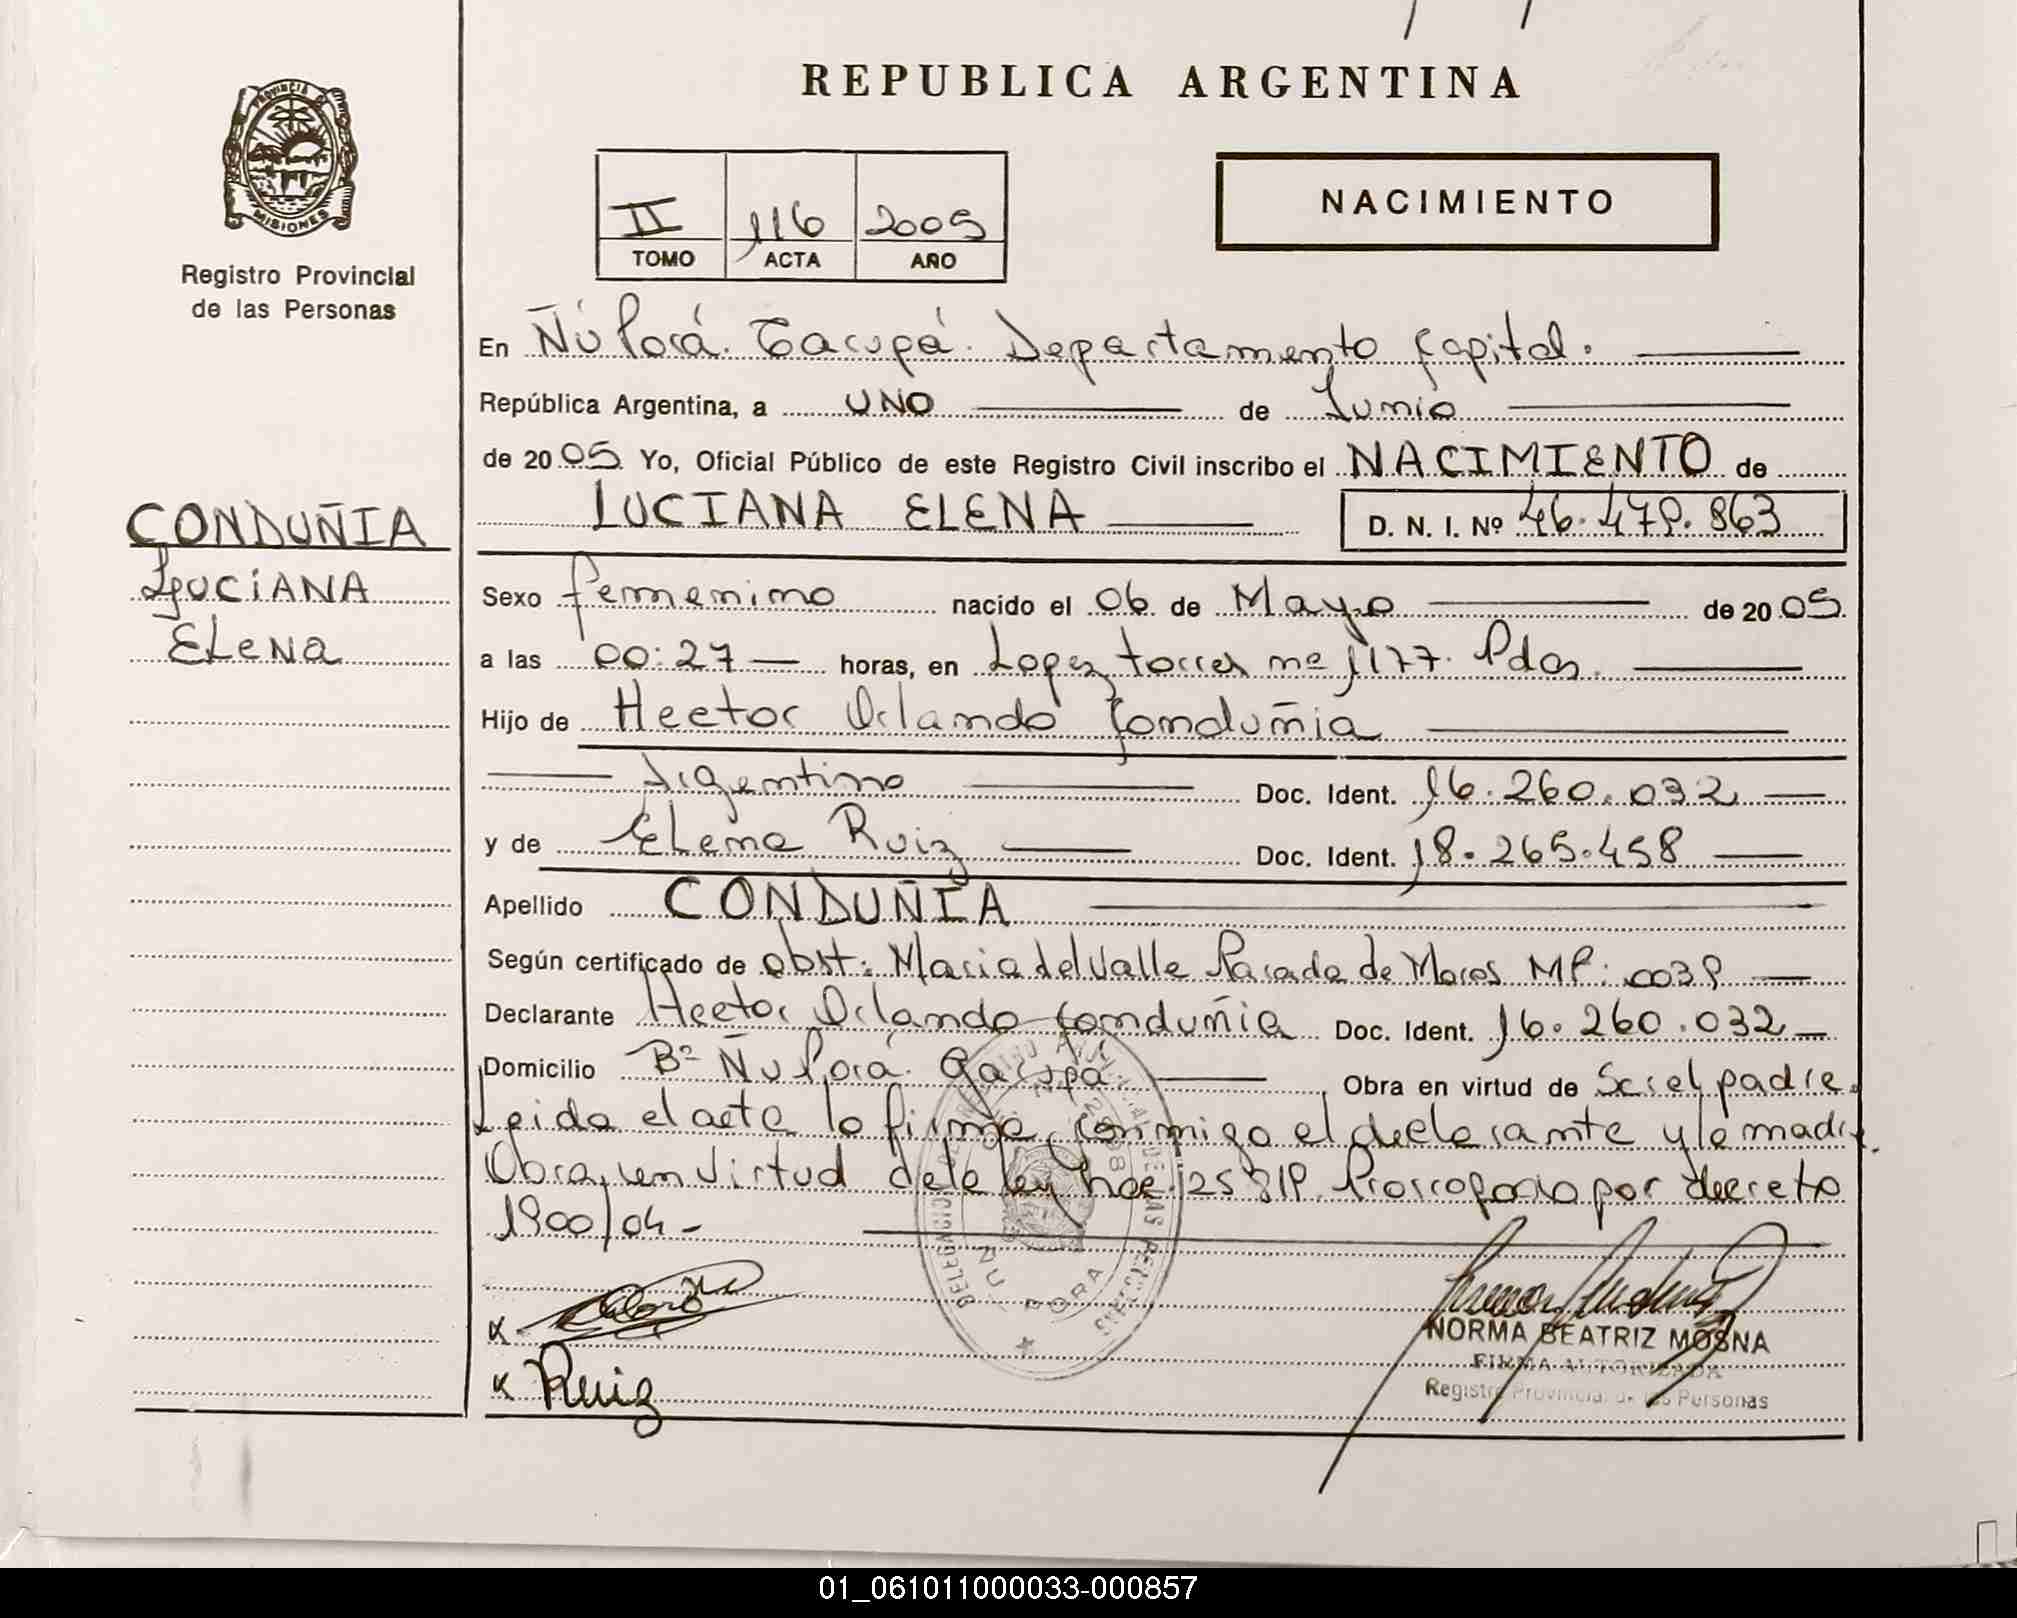 REPUBLICA ARGENTINA
PROVINCIA DE
MISIONES
Registro Provincial
de las Personas
II 116 2005
TOMO ACTA AÑO
NACIMIENTO
En Ñú Porá. Garupá. Departamento Capital.
República Argentina, a UNO de Junio
de 2005 Yo, Oficial Público de este Registro Civil inscribo el NACIMIENTO de
LUCIANA ELENA D. N. I. Nº 46.479.863
CONDUÑIA
LUCIANA
ELENA
Sexo femenino nacido el 06 de Mayo de 2005
a las 00:27 horas, en Lopez torres nº 1177. Pdas.
Hijo de Hector Orlando Conduñia
Argentino Doc. Ident. 16.260.032
y de Elena Ruiz Doc. Ident. 18.265.458
Apellido CONDUÑIA
Según certificado de obst: Maria del Valle Parada de Mores MP: 0039
Declarante Hector Orlando Conduñia Doc. Ident. 16.260.032
Domicilio Bº Ñu Porá. Garupá. Obra en virtud de Ser el padre.
Leida el acta la firma conmigo el declarante y la madre.
Obra en virtud de la ley nac. 25819. Prorrogada por decreto
1900/04-
Ruiz
NORMA BEATRIZ MOSNA
FIRMA AUTORIZADA
Registro Provincial de las Personas
ÑU PORA
01_061011000033-000857